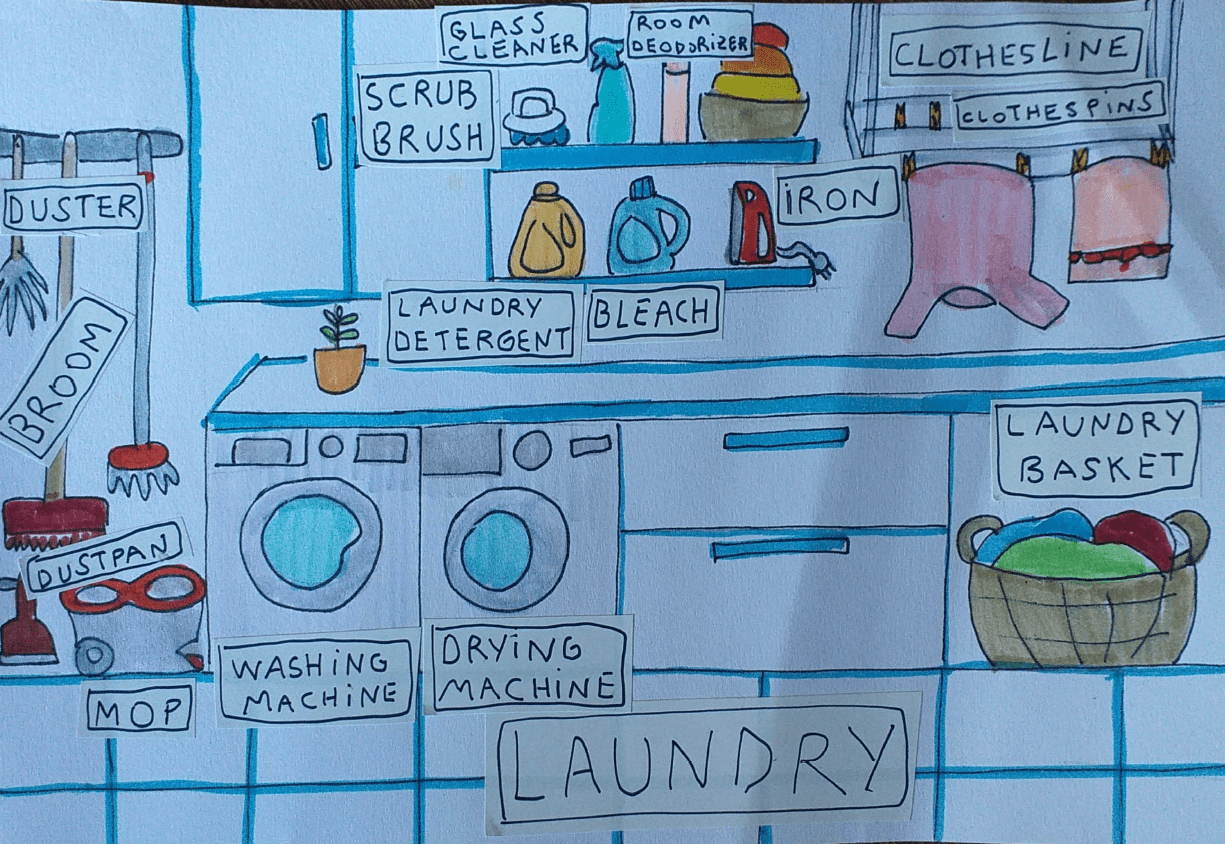 GLASS
CLEANER
ROOM
DEODORIZER
CLOTHESLINE
SCRUB
BRUSH
CLOTHESPINS
DUSTER
IRON
LAUNDRY
DETERGENT
BLEACH
BROOM
LAUNDRY
BASKET
DUSTPAN
WASHING
MACHINE
DRYING
MACHINE
MOP
LAUNDRY